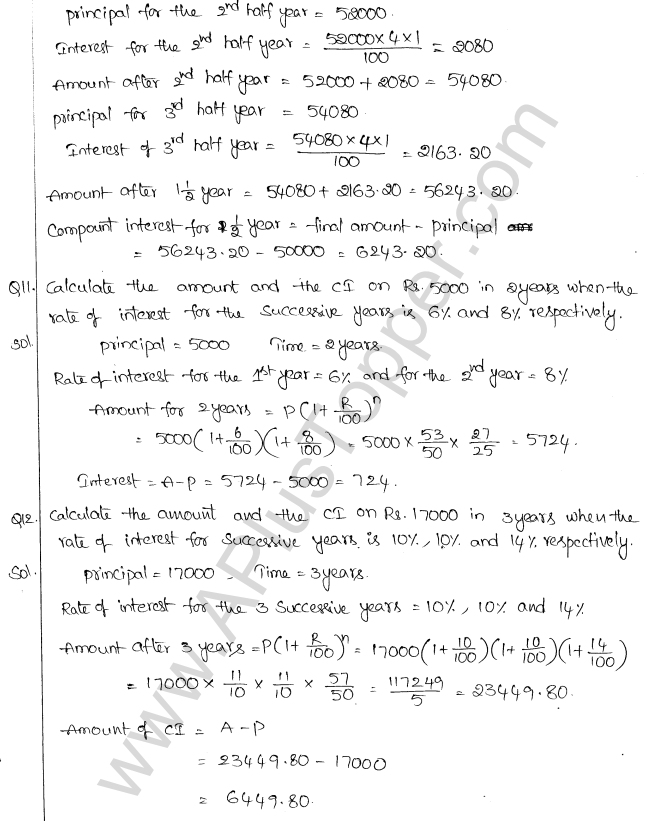 principal for the 2nd half year = 52000.
Interest for the 2nd half year = 52000 × 4 × 1 / 100 = 2080
Amount after 2nd half year = 52000 + 2080 = 54080.
principal for 3rd half year = 54080.
Interest of 3rd half year = 54080 × 4 × 1 / 100 = 2163.20
Amount after 1 1/2 year = 54080 + 2163.20 = 56243.20.
Compount interest for 1 1/2 year = final amount - principal
= 56243.20 - 50000 = 6243.20.
Q11. Calculate the amount and the CI on Rs. 5000 in 2years when the
rate of interest for the successive years is 6% and 8% respectively.
Sol. principal = 5000 Time = 2years.
Rate of interest for the 1st year = 6% and for the 2nd year = 8%
Amount for 2years = P(1 + R/100)^n
= 5000(1 + 6/100)(1 + 8/100) = 5000 × 53/50 × 27/25 = 5724.
Interest = A - P = 5724 - 5000 = 724.
Q12. Calculate the amount and the CI on Rs. 17000 in 3years when the
rate of interest for successive years is 10%, 10% and 14% respectively.
Sol. principal = 17000 Time = 3years.
Rate of interest for the 3 successive years = 10%, 10% and 14%
Amount after 3 years = P(1 + R/100)^n = 17000(1 + 10/100)(1 + 10/100)(1 + 14/100)
= 17000 × 11/10 × 11/10 × 57/50 = 117249/5 = 23449.80.
Amount of CI = A - P
= 23449.80 - 17000
= 6449.80.
www.APlusTopper.com